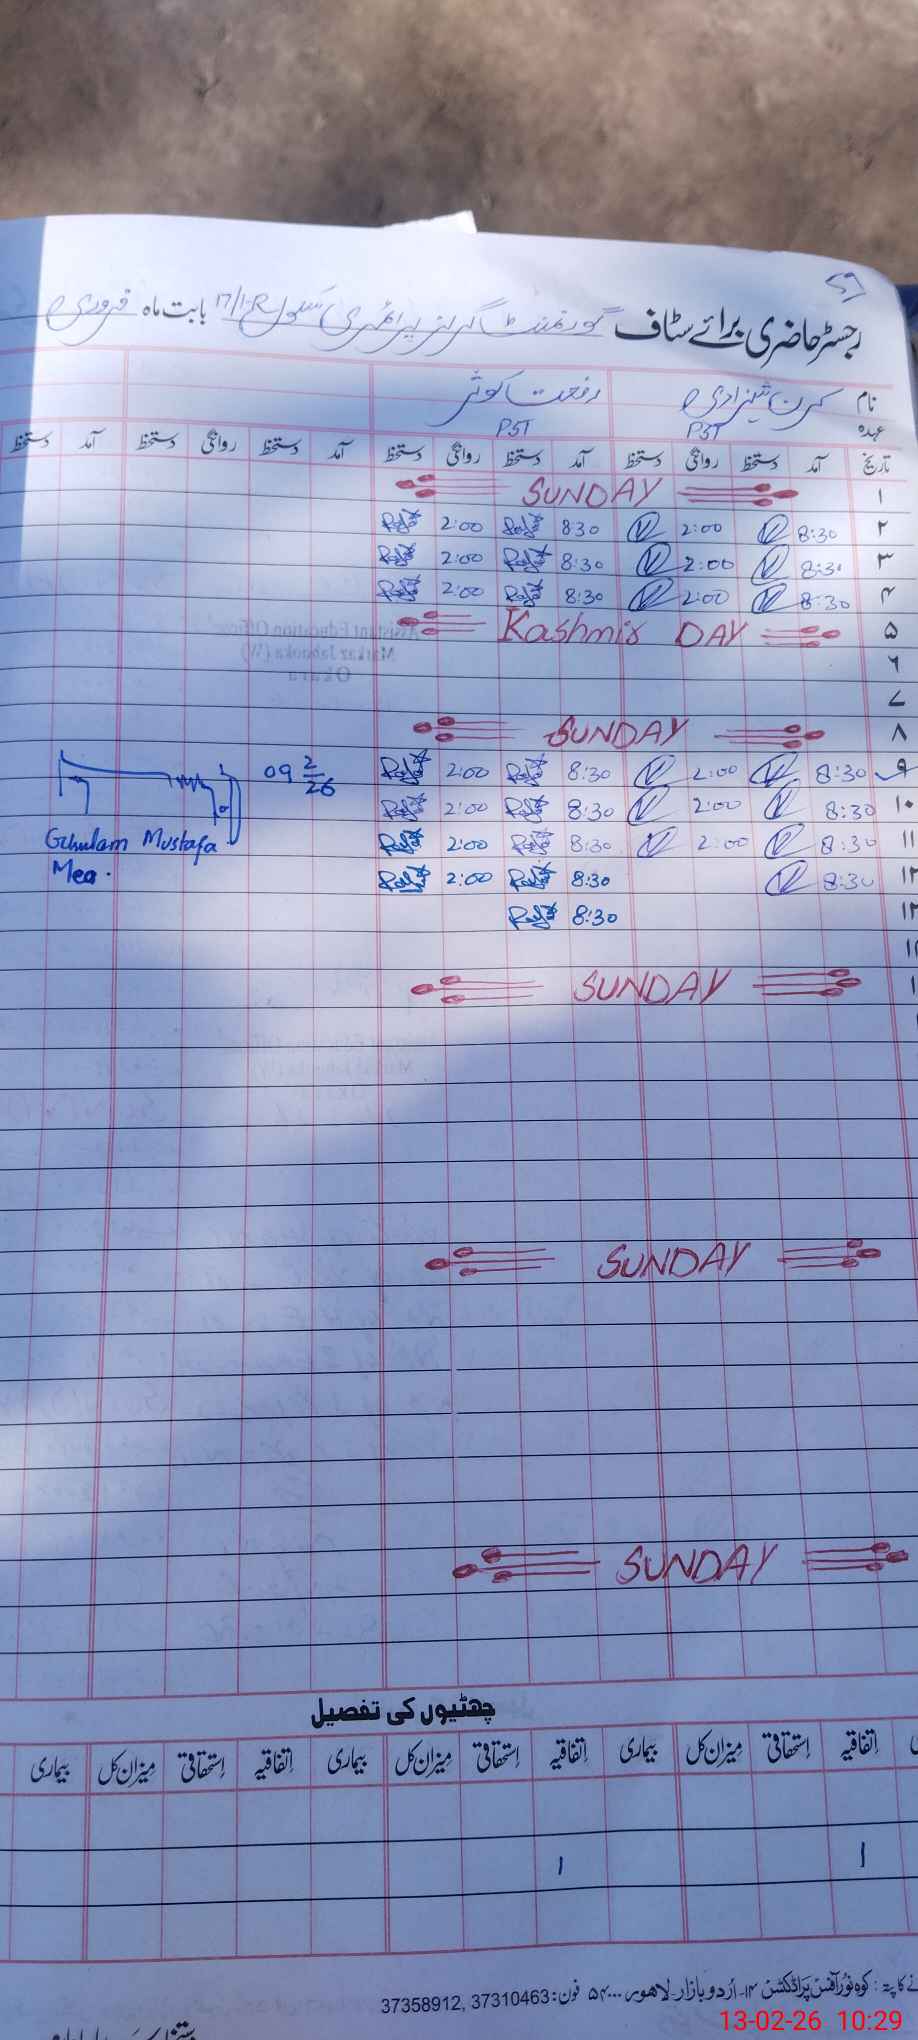 رجسٹر حاضری برائے سٹاف گورنمنٹ گرلز پرائمری سکول 17/1-R بابت ماہ فروری
نام کرن شہزادی رفعت کوثر
عہدہ PST PST
تاریخ آمد دستخط روانگی دستخط آمد دستخط روانگی دستخط آمد دستخط روانگی دستخط آمد دستخط
۱ SUNDAY
۲ 8:30 2:00 8:30 2:00
۳ 8:30 2:00 8:30 2:00
۴ 8:30 2:00 8:30 2:00
۵ Kashmir DAY
۶
۷
۸ SUNDAY
۹ 8:30 2:00 8:30 2:00 09 2/26
۱۰ 8:30 2:00 8:30 2:00
۱۱ 8:30 2:00 8:30 2:00 Ghulam Mustafa
۱۲ 8:30 8:30 2:00 Mea.
8:30
SUNDAY
SUNDAY
SUNDAY
چھٹیوں کی تفصیل
اتفاقیہ استحقاقی میزان کل بیماری اتفاقیہ استحقاقی میزان کل بیماری اتفاقیہ استحقاقی میزان کل بیماری
1 1
کوہ نور آفس پراڈکشن ۱۴-اردو بازار لاہور ۵۴۰۰۰ فون: 37310463, 37358912
13-02-26 10:29